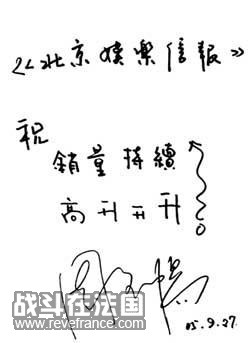 《北京娛樂信報》
祝
銷量持續
高升再升
05.9.27
战斗在法国
www.revefrance.com